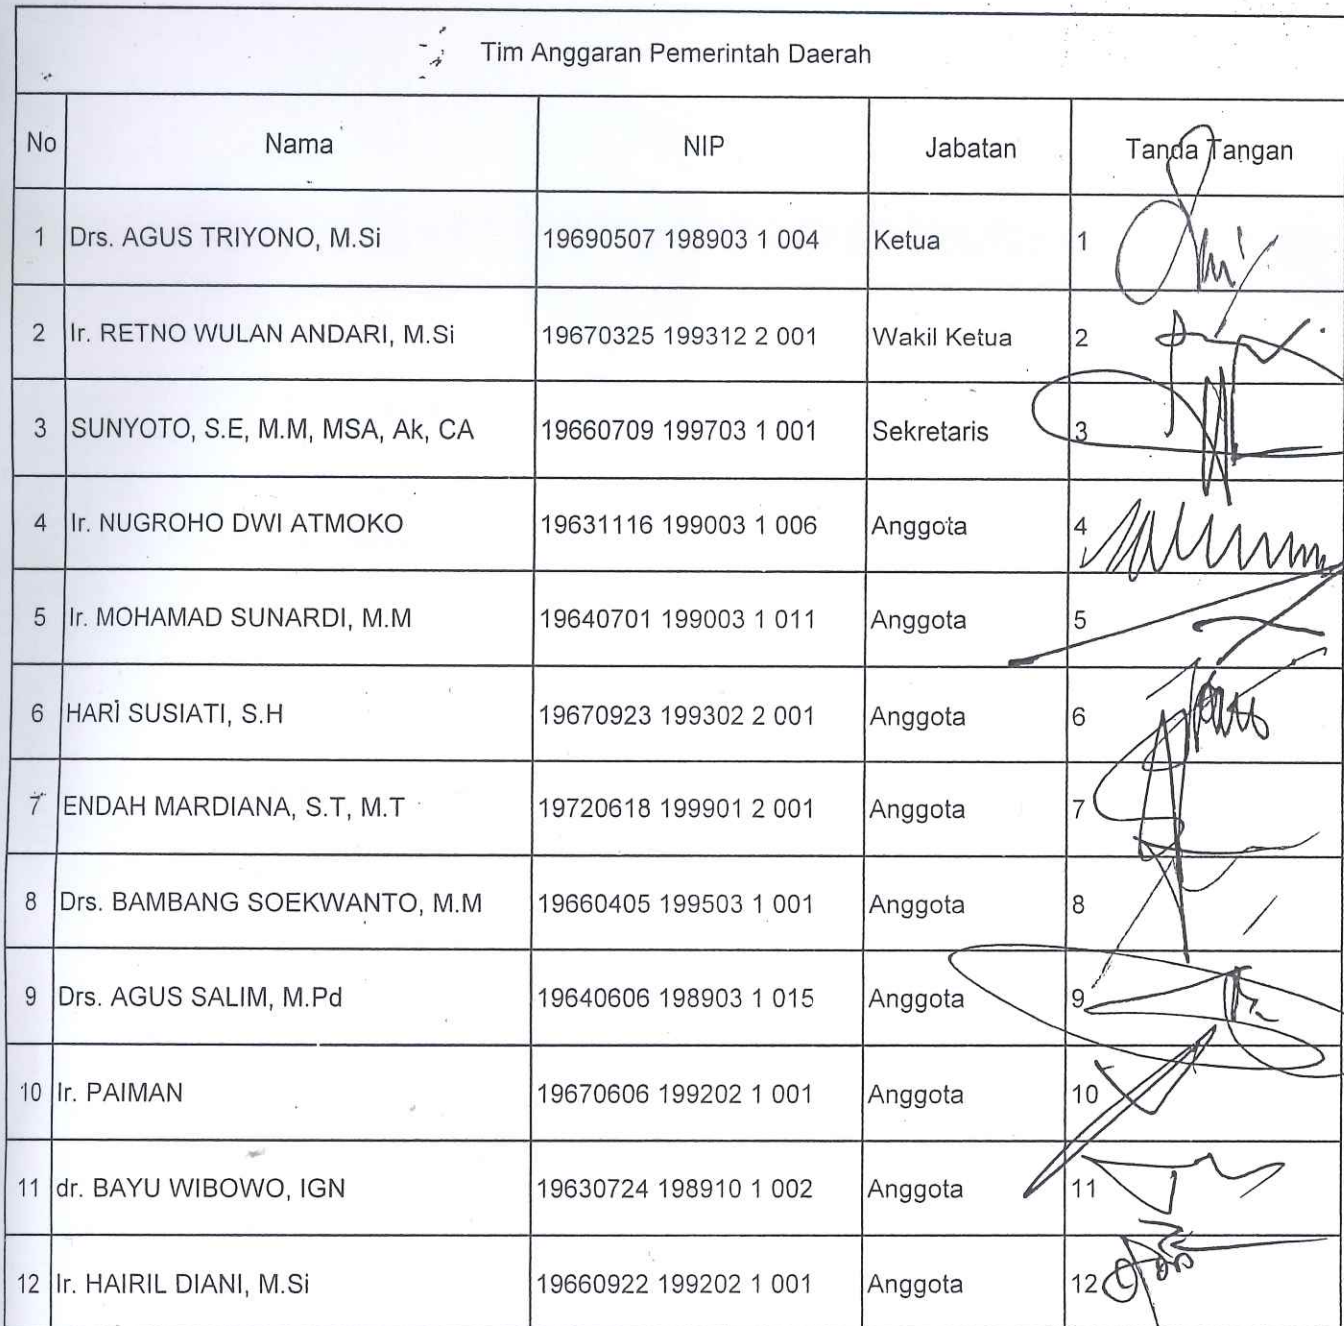 Tim Anggaran Pemerintah Daerah
No Nama NIP Jabatan Tanda Tangan
1 Drs. AGUS TRIYONO, M.Si 19690507 198903 1 004 Ketua 1
2 Ir. RETNO WULAN ANDARI, M.Si 19670325 199312 2 001 Wakil Ketua 2
3 SUNYOTO, S.E, M.M, MSA, Ak, CA 19660709 199703 1 001 Sekretaris 3
4 Ir. NUGROHO DWI ATMOKO 19631116 199003 1 006 Anggota 4
5 Ir. MOHAMAD SUNARDI, M.M 19640701 199003 1 011 Anggota 5
6 HARI SUSIATI, S.H 19670923 199302 2 001 Anggota 6
7 ENDAH MARDIANA, S.T, M.T 19720618 199901 2 001 Anggota 7
8 Drs. BAMBANG SOEKWANTO, M.M 19660405 199503 1 001 Anggota 8
9 Drs. AGUS SALIM, M.Pd 19640606 198903 1 015 Anggota 9
10 Ir. PAIMAN 19670606 199202 1 001 Anggota 10
11 dr. BAYU WIBOWO, IGN 19630724 198910 1 002 Anggota 11
12 Ir. HAIRIL DIANI, M.Si 19660922 199202 1 001 Anggota 12